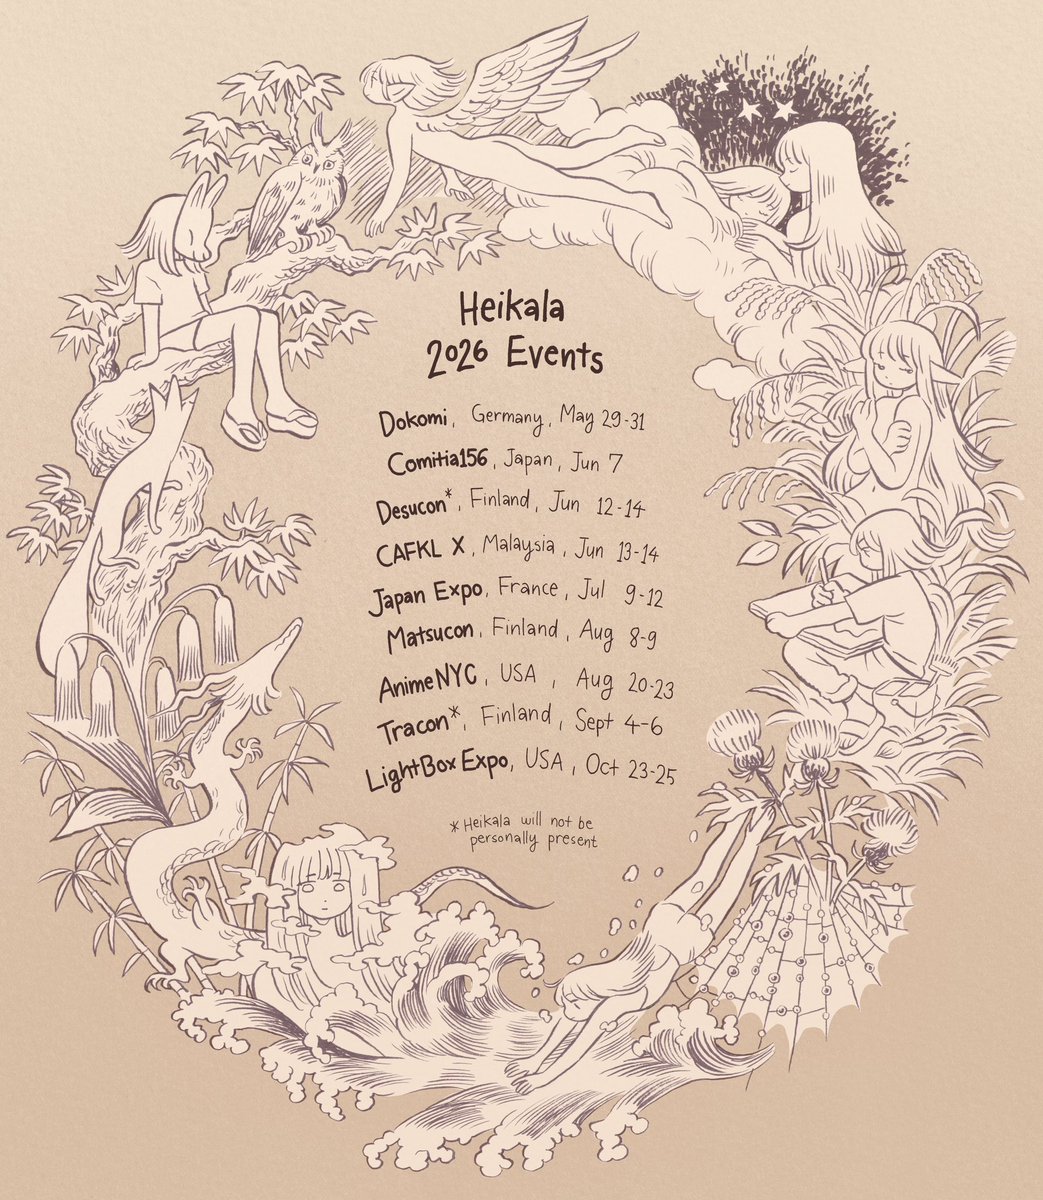 Heikala
2026 Events
Dokomi, Germany, May 29-31
Comitia156, Japan, Jun 7
Desucon*, Finland, Jun 12-14
CAFKL X, Malaysia, Jun 13-14
Japan Expo, France, Jul 9-12
Matsucon, Finland, Aug 8-9
AnimeNYC, USA, Aug 20-23
Tracon*, Finland, Sept 4-6
LightBox Expo, USA, Oct 23-25
* Heikala will not be
personally present